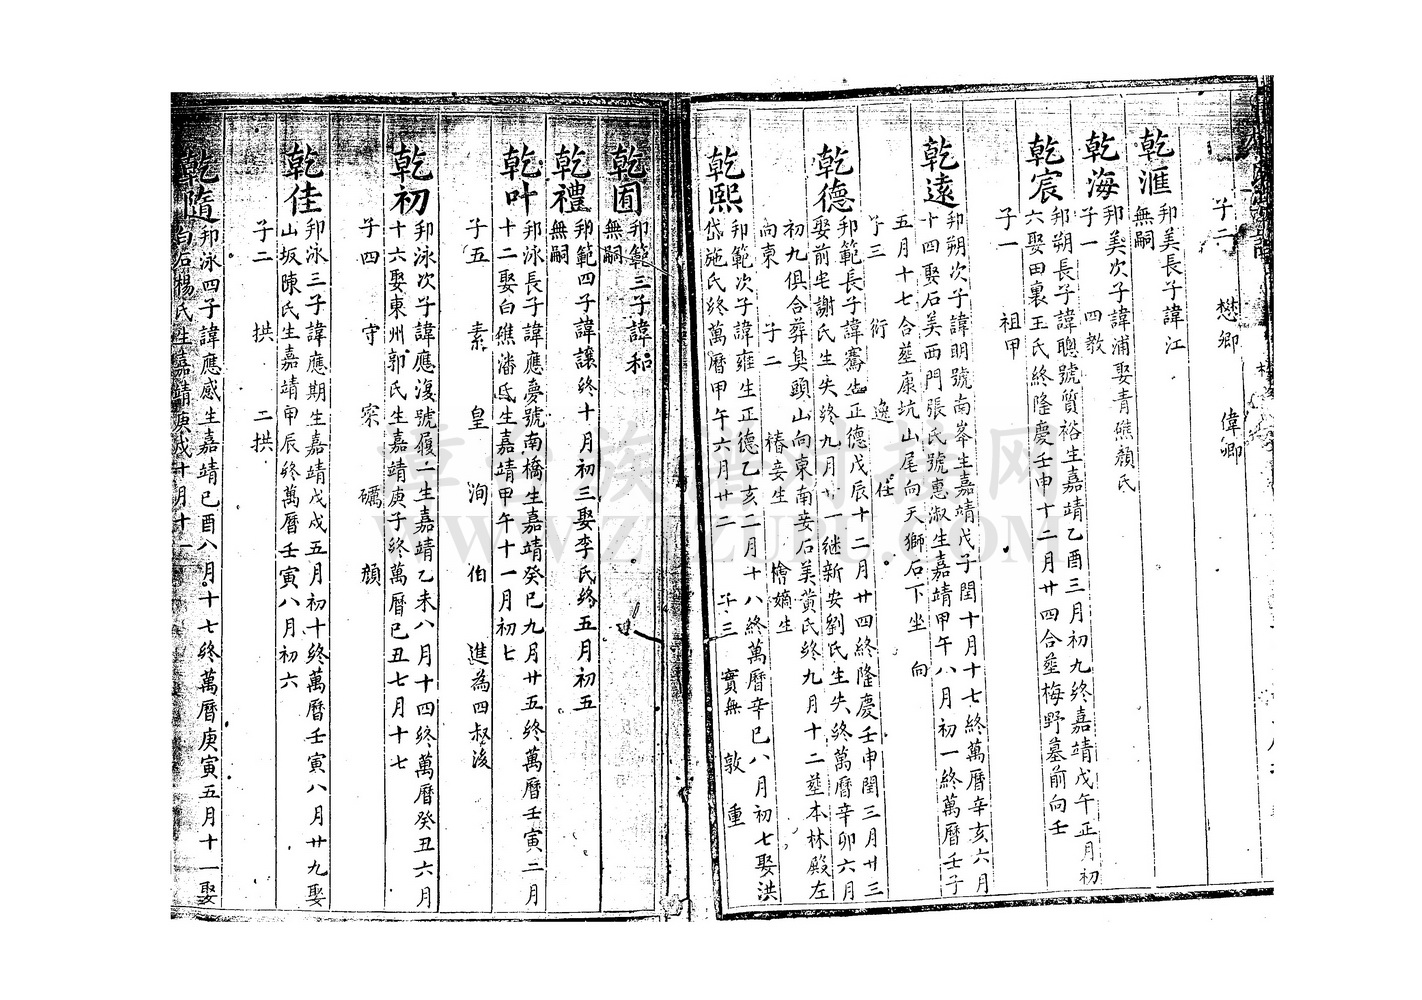 子二 懋卿 偉卿
乾滙 邦美長子諱江
無嗣
乾海 邦美次子諱浦娶青礁顏氏
子一 四教
乾宸 邦朔長子諱聰號質裕生嘉靖乙酉三月初九終嘉靖戊午正月初
六娶田裏王氏終隆慶壬申十二月廿四合塟梅野墓前向壬
子一 祖甲
乾遠 邦朔次子諱明號南峯生嘉靖戊子閏十月十七終萬曆辛亥六月
十四娶石美西門張氏號惠淑生嘉靖甲午八月初一終萬曆壬子
五月十七合塟康坑山尾向天獅石下坐向
子三 衍 逸 任
乾德 邦範長子諱騫生正德戊辰十二月廿四終隆慶壬申閏三月廿三
娶前宅謝氏生失終九月廿継新安劉氏生失終萬曆辛卯六月
初九俱合葬臭頭山向東南妾石美黃氏終九月十二塟本林殿左
向東 子二 椿妾生 檜嫡生
乾熙 邦範次子諱雍生正德乙亥二月十八終萬曆辛巳八月初七娶洪
岱施氏終萬曆甲午六月廿二 子三 實無 敦 重
乾囿 邦範三子諱和
無嗣
乾禮 邦範四子諱讓終十月初三娶李氏終五月初五
無嗣
乾叶 邦泳長子諱應夢號南橋生嘉靖癸巳九月廿五終萬曆壬寅二月
十二娶白礁潘氏生嘉靖甲午十一月初七
子五 素 皇 洵 伯 進為四叔後
乾初 邦泳次子諱應復號履二生嘉靖乙未八月十四終萬曆癸丑六月
十六娶東州郭氏生嘉靖庚子終萬曆己丑七月十七
子四 守 宷 礪 顏
乾佳 邦泳三子諱應期生嘉靖戊戌五月初十終萬曆壬寅八月廿九娶
山坂陳氏生嘉靖甲辰終萬曆壬寅八月初六
子二 拱 二拱
乾隨 邦泳四子諱應感生嘉靖己酉八月十七終萬曆庚寅五月十一娶
白石楊氏生嘉靖庚戌十月十一
WWW.ZTZUPU.COM